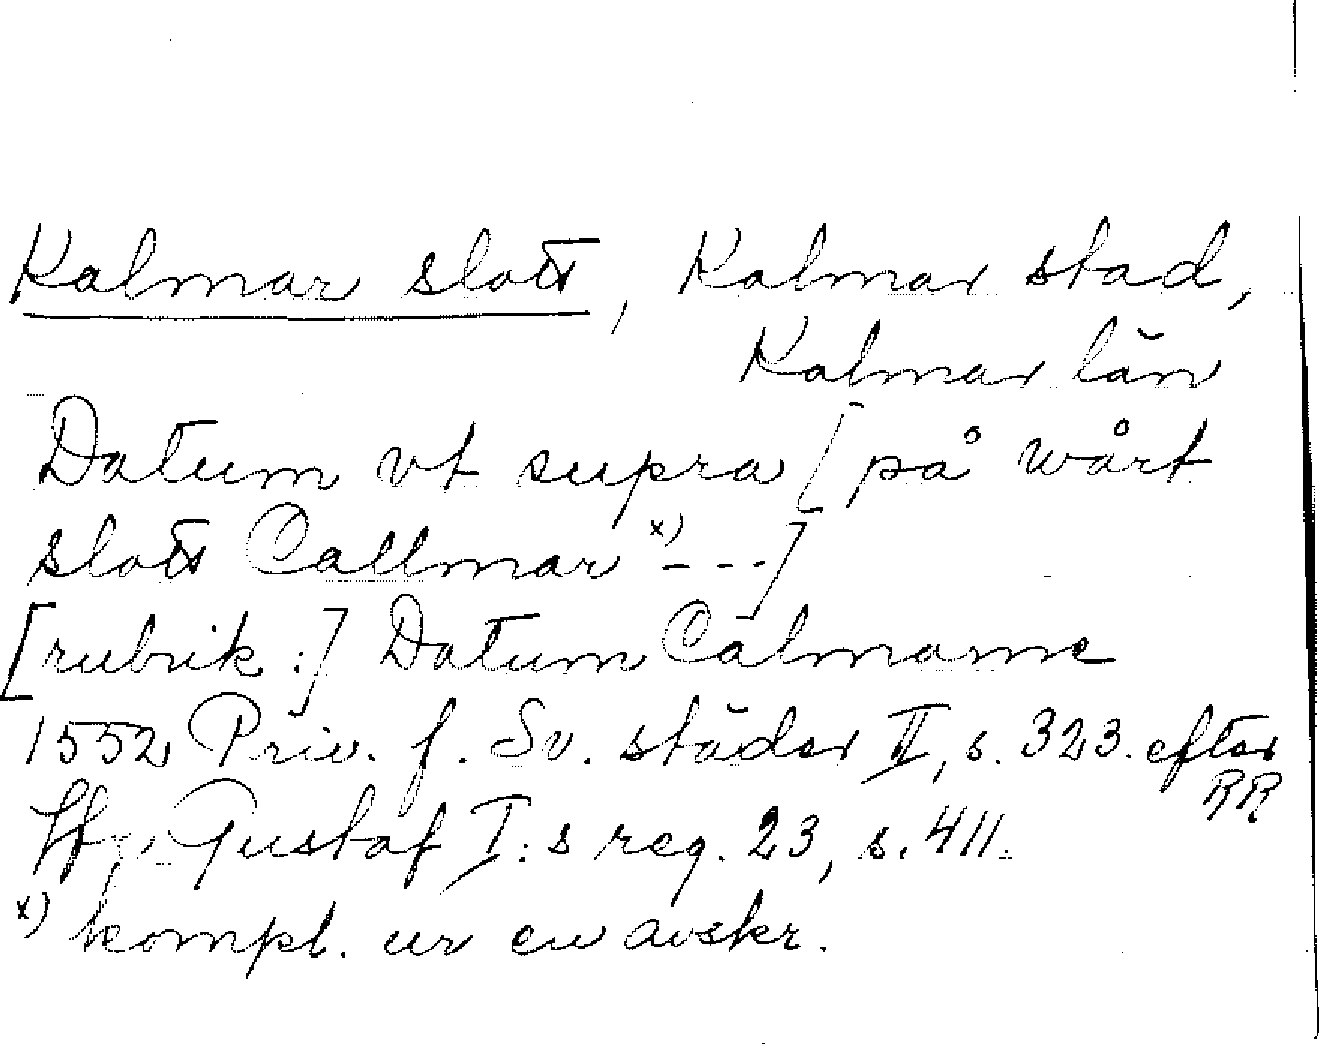 Kalmar slott, Kalmar stad,
Kalmar län
Datum vt supra [på wårt
slott Callmar x) - - -]
[rubrik:] Datum Calmarne
1552 Priv. f. Sv. städer II, s. 323. efter
RR
Gustaf I:s reg. 23, s. 411.
x) kompl. ur en avskr.